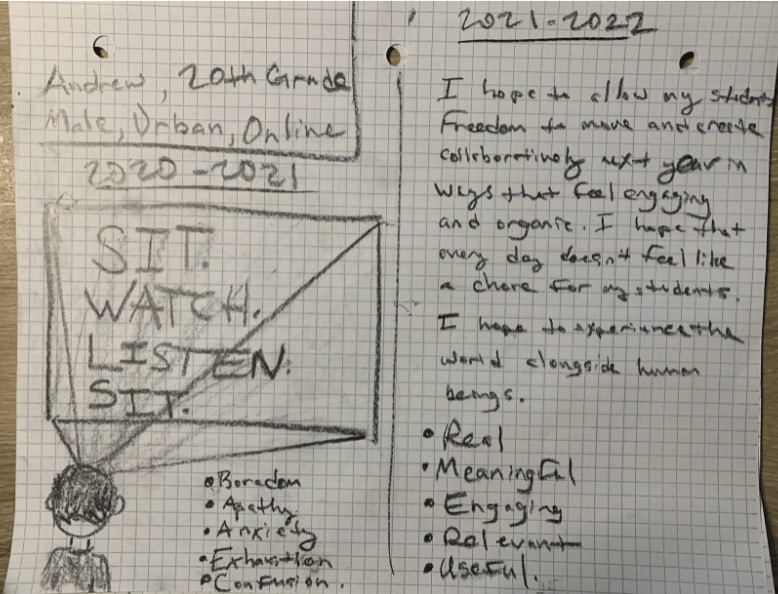 Andrew, 20th Grade
Male, Urban, Online
2020-2021
SIT.
WATCH.
LISTEN.
SIT.
• Boredom
• Apathy
• Anxiety
• Exhaustion
• Confusion.
2021-2022
I hope to allow my students
Freedom to move and create
collaboratively next year in
ways that feel engaging
and organic. I hope that
every day doesn't feel like
a chore for my students.
I hope to experience the
world alongside human
beings.
• Real
• Meaningful
• Engaging
• Relevant
• Useful.